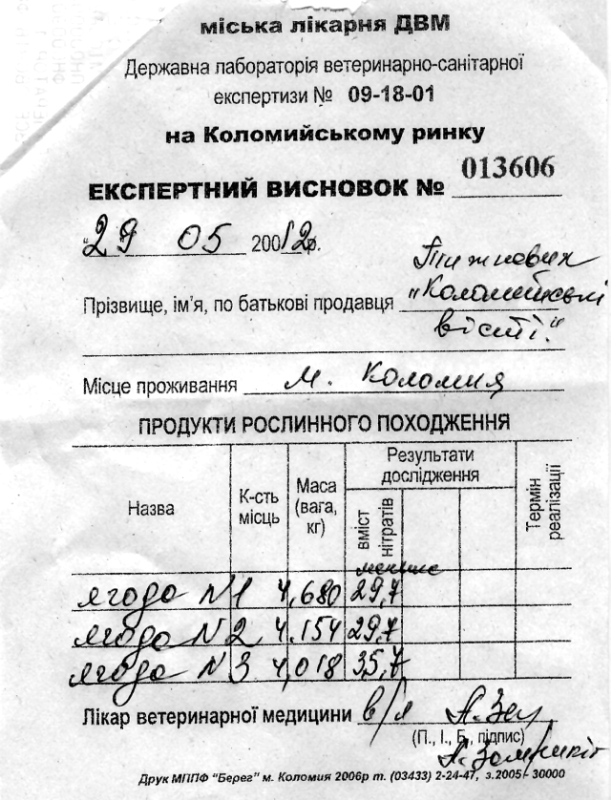 міська лікарня ДВМ
Державна лабораторія ветеринарно-санітарної
експертизи № 09-18-01
на Коломийському ринку
ЕКСПЕРТНИЙ ВИСНОВОК № 013606
"29 05 2012р.
Тижневик
Прізвище, ім'я, по батькові продавця "Коломийські
вісті."
Місце проживання м. Коломия
ПРОДУКТИ РОСЛИННОГО ПОХОДЖЕННЯ
Назва К-сть місць Маса (вага, кг) Результати дослідження вміст нітратів Термін реалізації
менше
ягода №1 4,680 29,7
ягода №2 4,154 29,7
ягода №3 4,018 35,7
Лікар ветеринарної медицини в/л
(П., І., Б., підпис)
Друк МППФ "Берег" м. Коломия 2006р т. (03433) 2-24-47, з.2005- 30000